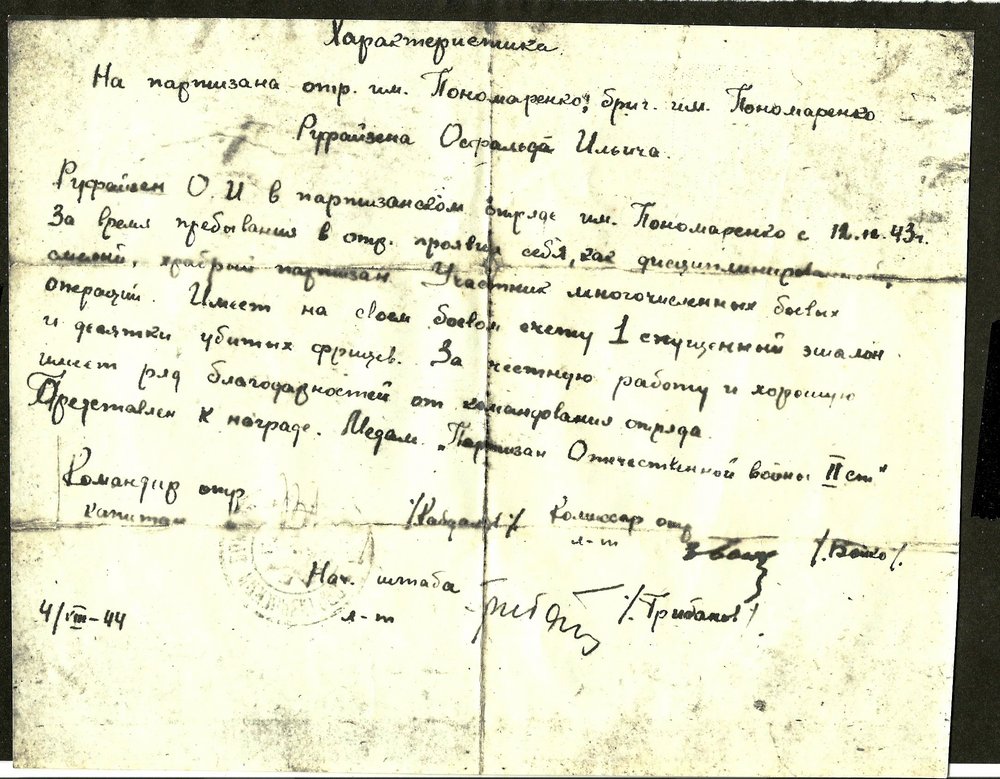 Характеристика
На партизана отр. им. Пономаренко, бриг. им. Пономаренко
Руфайзена Освальда Ильича.
Руфайзен О. И в партизанском отряде им. Пономаренко с 12.
За время пребывания в отр. проявил себя, как дисциплинированный,
смелый, храбрый партизан Участник многочисленных боевых
операций. Имеет на своем боевом счету 1 спущенный эшалон
и десятки убитых фрицев. За честную работу и хорошую
имеет ряд благодарностей от командования отряда.
Представлен к награде. Медаль „Партизан Отечественной войны II ст"
Командир отр
капитан
Комиссар отр
л-т
/.Бойко/.
Нач. штаба
л-т
/.Грибанов/.
4/VIII-44